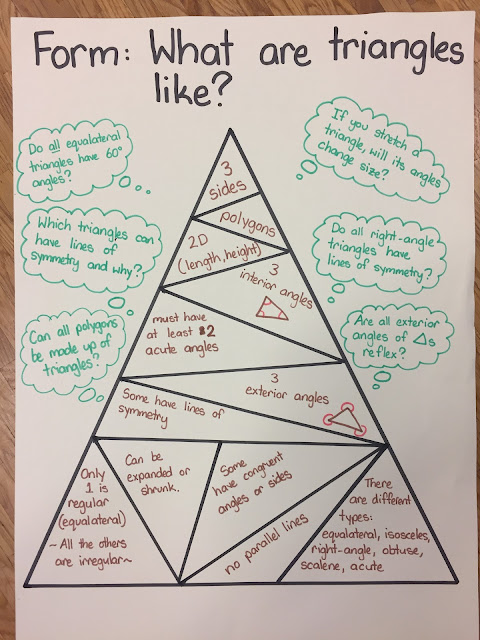 Form: What are triangles
like?
Do all equalateral
triangles have 60°
angles?
If you stretch a
triangle, will its angles
change size?
Which triangles can
have lines of
symmetry and why?
Do all right-angle
triangles have
lines of symmetry?
Can all polygons
be made up of
triangles?
Are all exterior
angles of △s
reflex?
3
sides
polygons
2D
(length, height)
3
interior angles
must have
at least 2
acute angles
3
exterior angles
Some have lines of
symmetry
Only
1 is
regular
(equalateral)
~All the others
are irregular~
Can be
expanded or
shrunk.
Some
have congruent
angles or sides
no parallel lines
There
are different
types:
equalateral, isosceles,
right-angle, obtuse,
scalene, acute